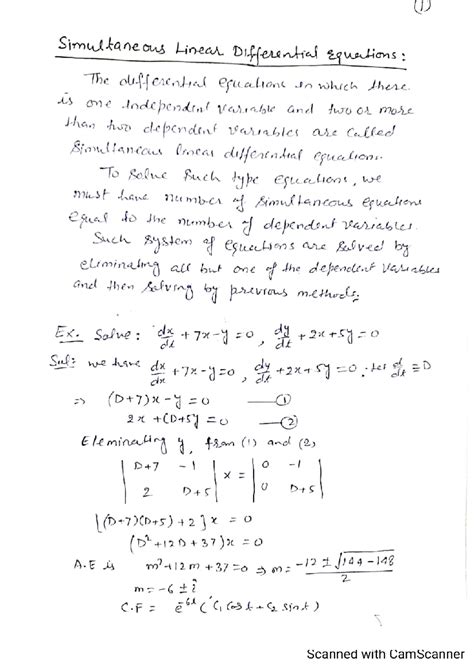 (1)
Simultaneous Linear Differential Equations:
The differential equations in which there
is one independent variable and two or more
than two dependent variables are called
Simultaneous linear differential equation.
To solve such type equations, we
must have number of simultaneous equations
equal to the number of dependent variables.
Such system of equations are solved by
eliminating all but one of the dependent variables
and then solving by previous methods.
Ex. Solve: dx/dt + 7x-y=0, dy/dt + 2x+5y=0
Sol: we have dx/dx + 7x-y=0, dy/dt + 2x+5y=0. Let d/dt ≡ D
⇒ (D+7)x-y = 0 —①
2x+(D+5)y = 0 —②
Eleminating y, from (1) and (2)
| D+7 -1 | x = | 0 -1 |
| 2 D+5 | | 0 D+5 |
[(D+7)(D+5)+2]x = 0
(D²+12D+37)x = 0
A.E is m²+12m+37=0 ⇒ m = -12 ± √144-148 / 2
m = -6 ± i
C.F = e^-6t (C1 Cos t + C2 Sin t)
Scanned with CamScanner